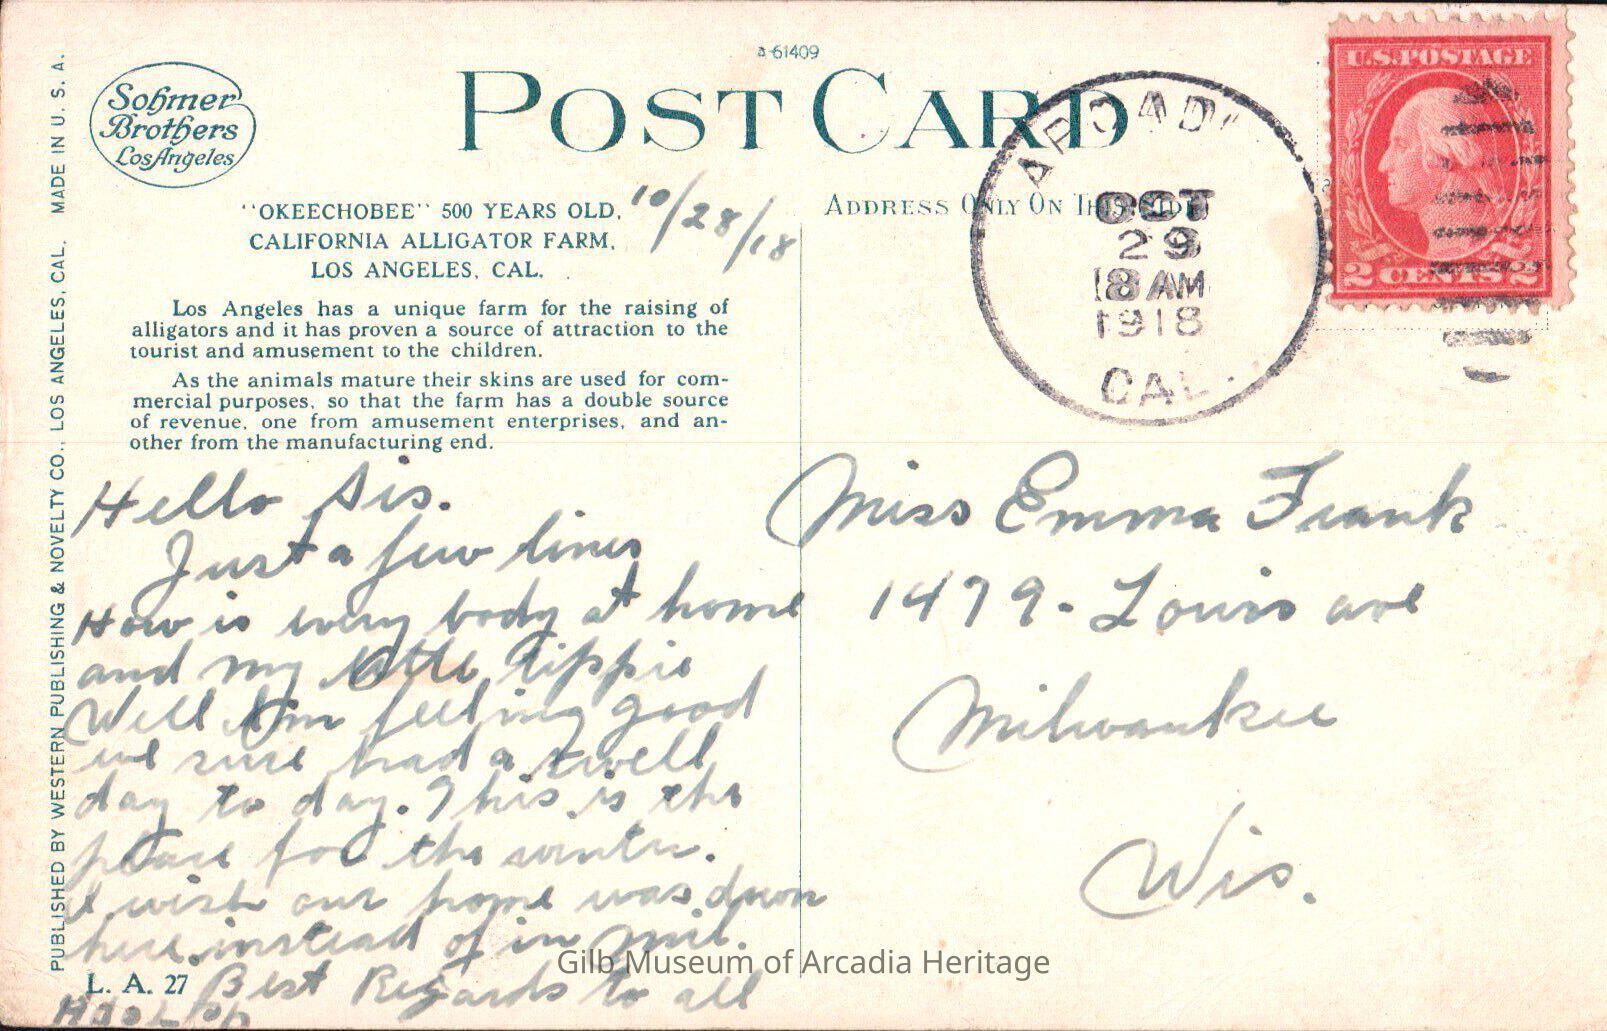 a-61409
Sohmer
Brothers
Los Angeles
POST CARD
MADE IN U. S. A.
PUBLISHED BY WESTERN PUBLISHING & NOVELTY CO., LOS ANGELES, CAL.
"OKEECHOBEE" 500 YEARS OLD,
CALIFORNIA ALLIGATOR FARM,
LOS ANGELES, CAL.
10/28/18
Los Angeles has a unique farm for the raising of
alligators and it has proven a source of attraction to the
tourist and amusement to the children.
As the animals mature their skins are used for com-
mercial purposes, so that the farm has a double source
of revenue, one from amusement enterprises, and an-
other from the manufacturing end.
Hello Sis.
Just a few lines
How is every body at home
and my little Tippie
Well I'm feeling good
we sure had a swell
day to day. This is the
place for the winter.
I wish our home was down
here instead of in Mil.
Best Regards to all
L. A. 27
ADDRESS ONLY ON THIS SIDE
ARCADIA
OCT
29
8 AM
1918
CAL.
U.S. POSTAGE
2 CENTS 2
Miss Emma Frank
1479 - Louis ave
Milwaukee
Wis.
Gilb Museum of Arcadia Heritage